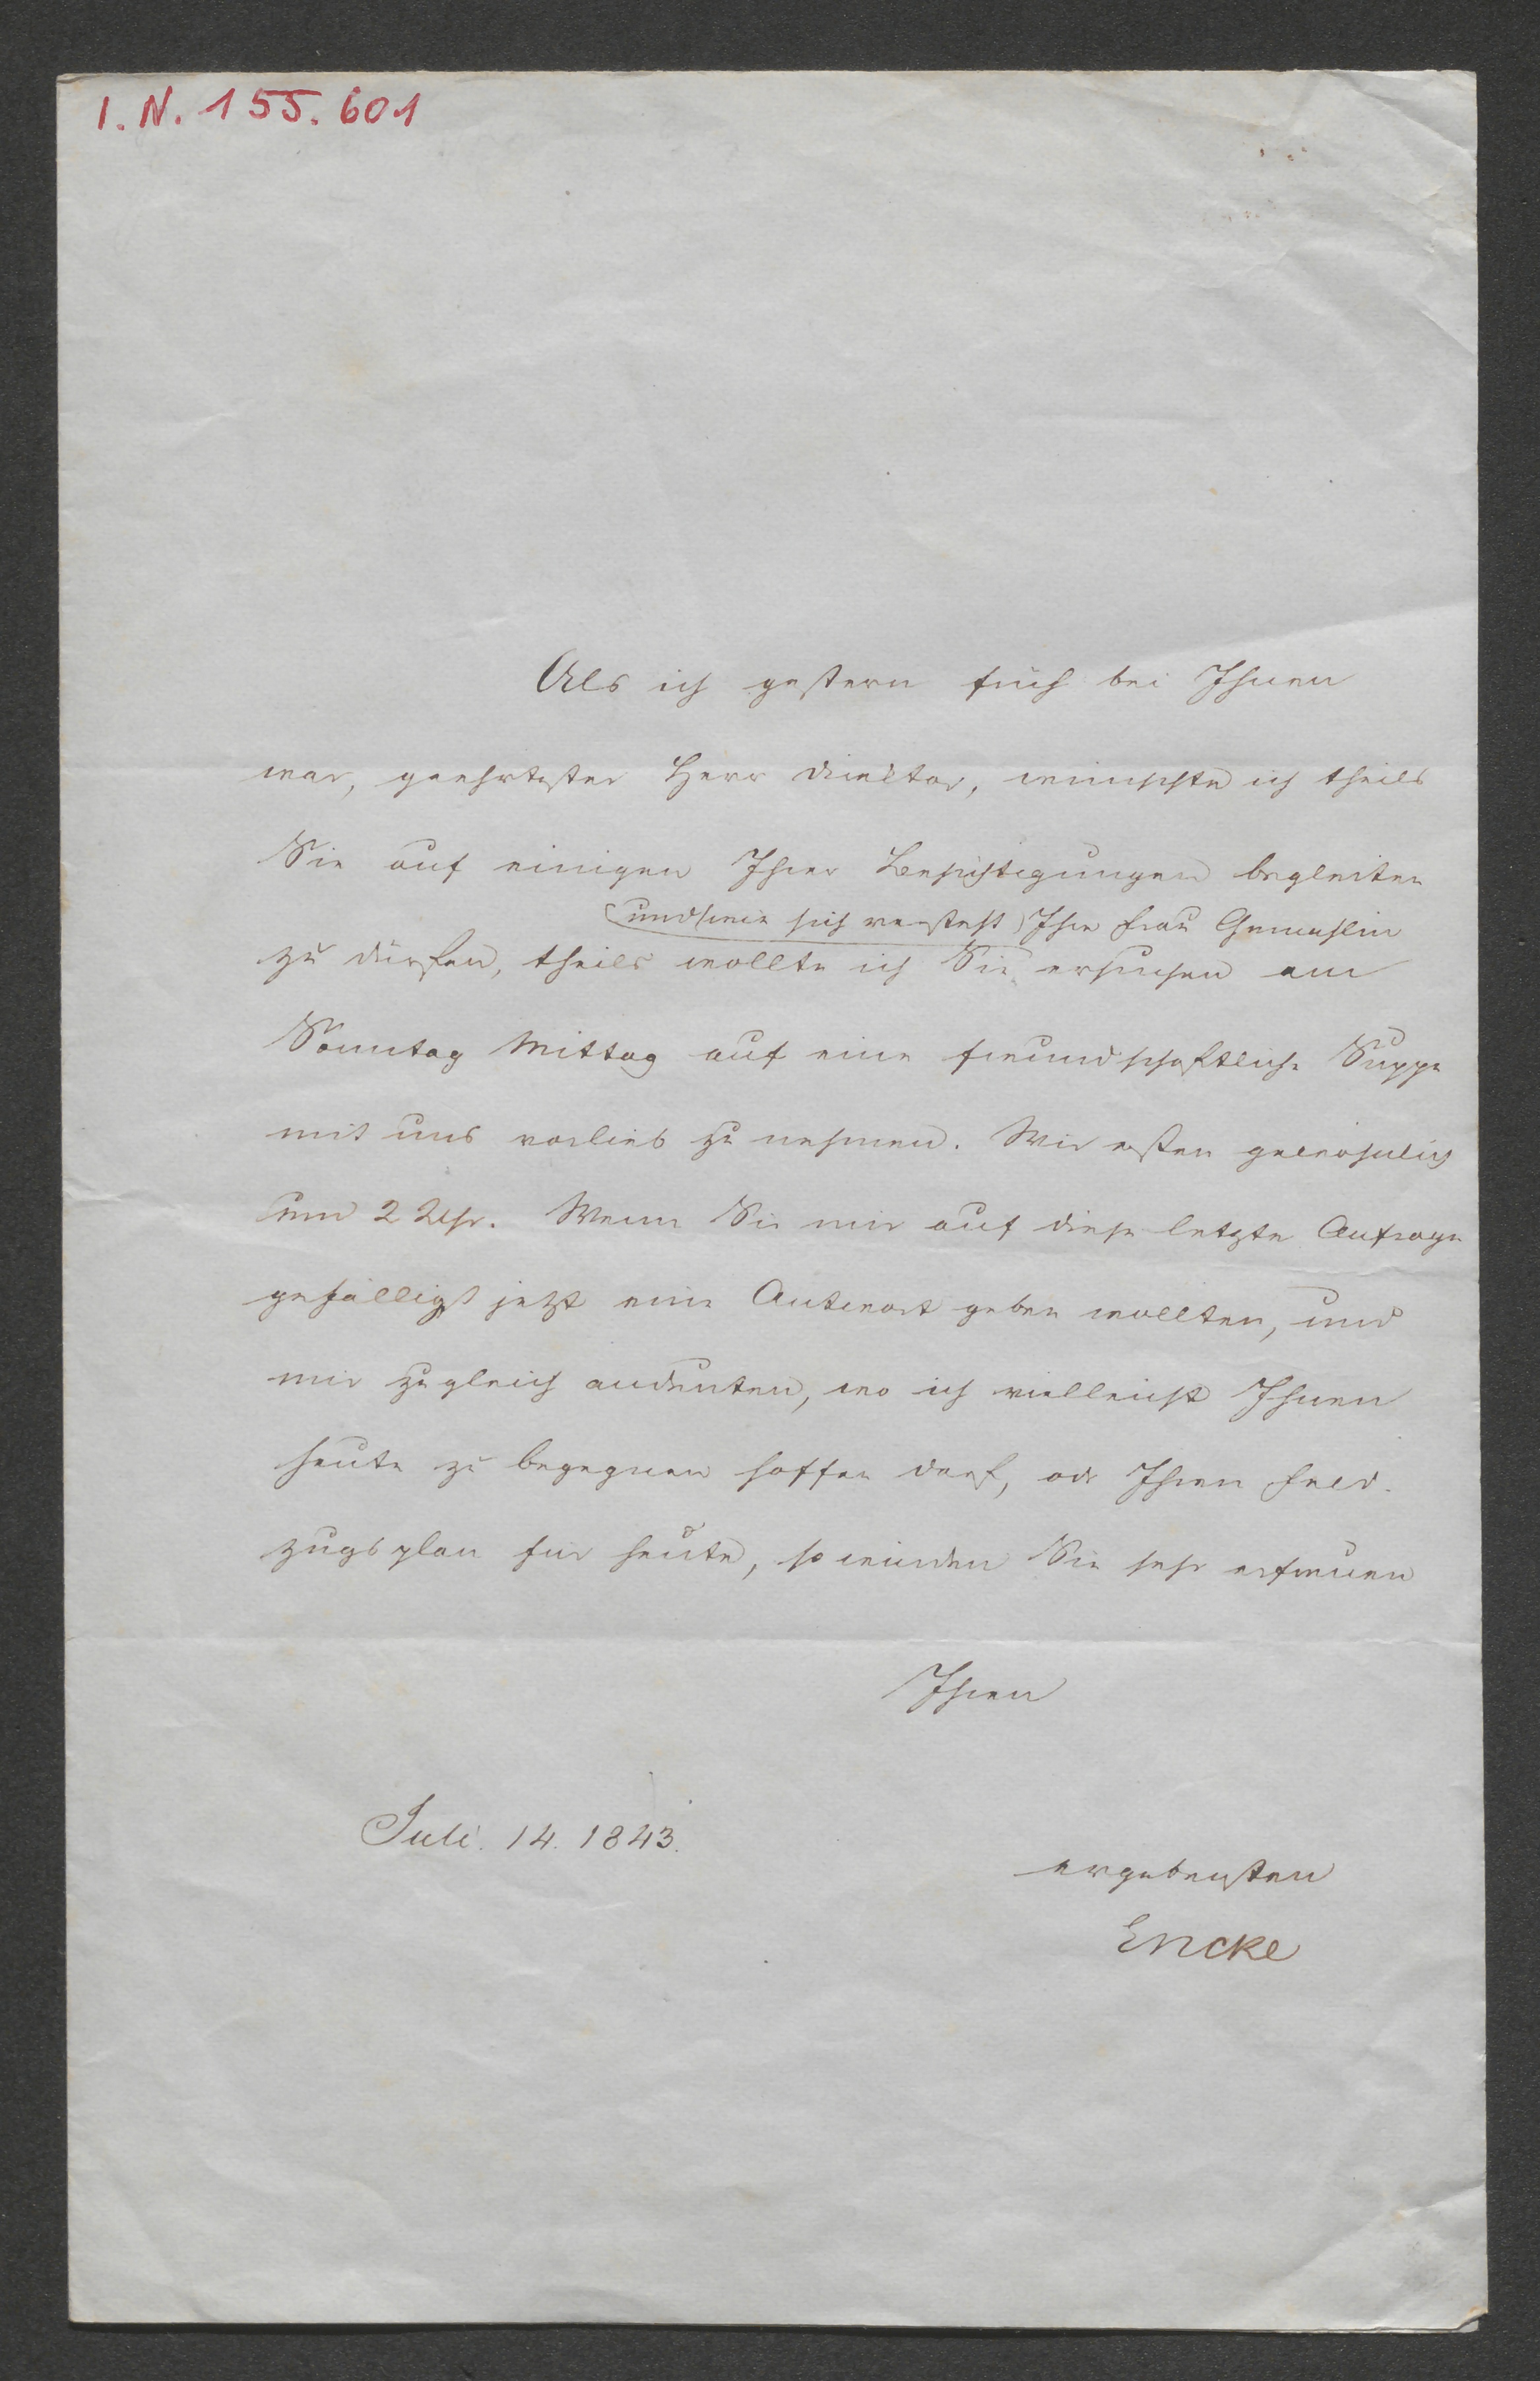 I. N. 155.601
Als ich gestern früh bei Ihnen
war, geehrtester Herr Direktor, wünschte ich theils
Sie auf einigen Ihrer Besichtigungen begleiten
und (wie sich versteht) Ihre Frau Gemahlin
zu dürfen, theils wollte ich Sie ersuchen am
Sonntag Mittag auf eine freundschaftliche Suppe
mit uns vorlieb zu nehmen. Wir essen gewöhnlich
um 2 Uhr. Wenn Sie mir auf diese letzte Anfrage
gefälligst jetzt eine Antwort geben wollten, und
mir zugleich andeuten, wo ich vielleicht Ihnen
heute zu begegnen hoffen darf, oder Ihren Feld-
zugsplan für heute, so würden Sie sehr erfreuen
Ihren
Juli. 14. 1843.
ergebensten
Encke